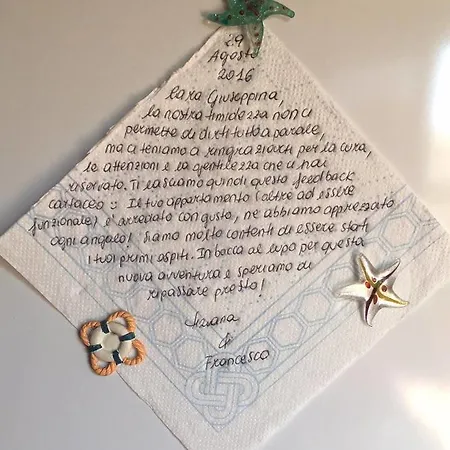 29
Agosto
2016
Cara Giuseppina,
la nostra timidezza non ci
permette di dirti tutto a parole,
ma ci teniamo a ringraziarti per la cura,
le attenzioni e la gentilezza che ci hai
riservato. Ti lasciamo quindi questo feedback
cartaceo :: Il tuo appartamento (oltre ad essere
funzionale) e' arredato con gusto, ne abbiamo apprezzato
ogni angolo! Siamo molto contenti di essere stati
i tuoi primi ospiti. In bocca al lupo per questa
nuova avventura e speriamo di
ripassare presto!
&
Francesco